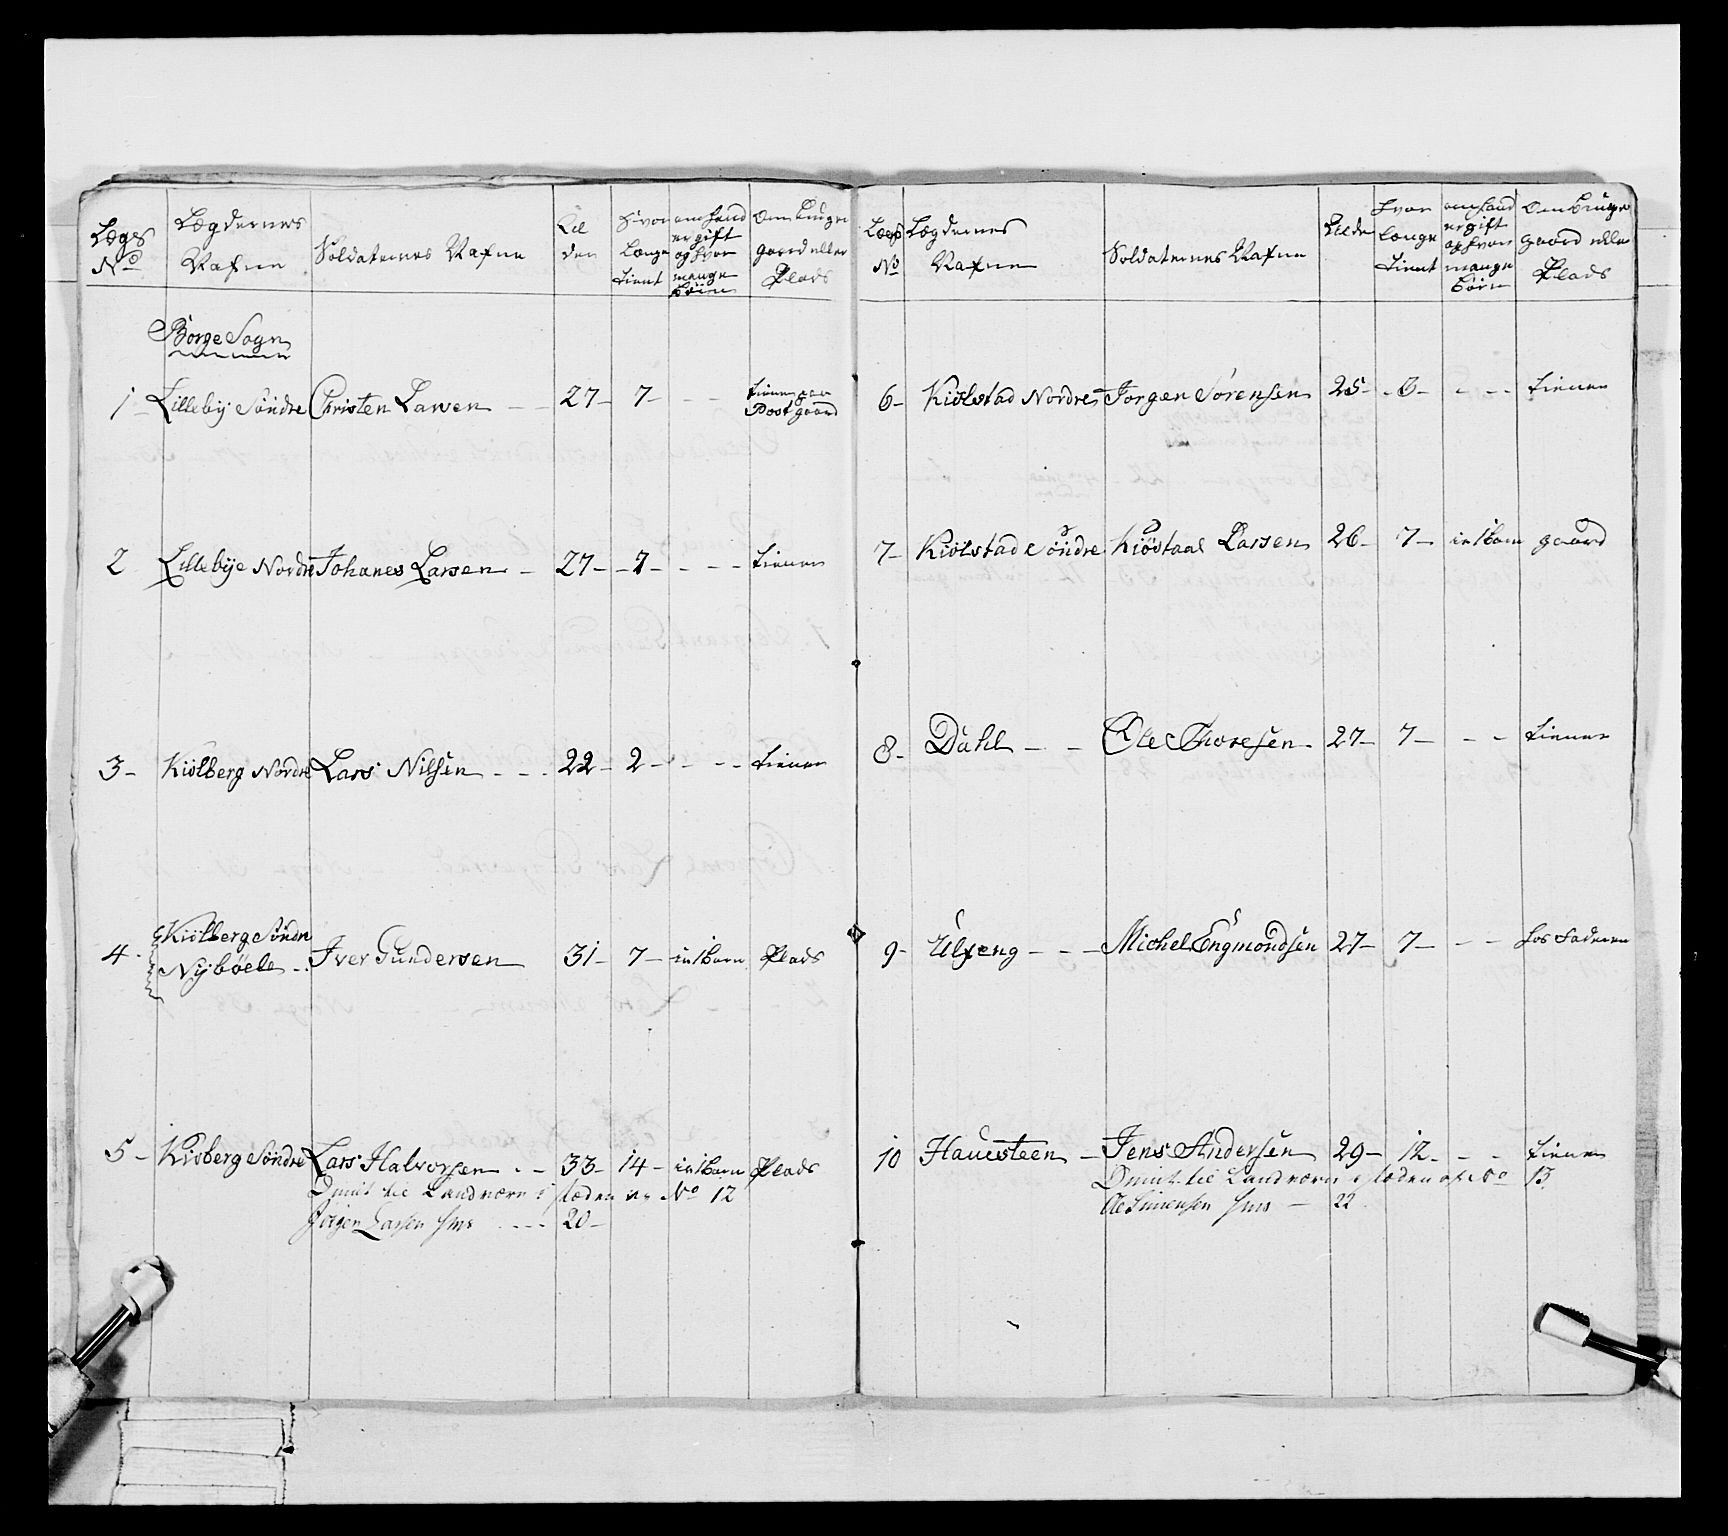 Lægs No Lægdernes Nafne Soldaternes Nafne Alderen Hvor Længe tient om hand er gift og hvor mange Börn Om bruger gaard eller Plads
Borge Sogn
1 - Lillebÿ Söndre Christen Larsen - - 27 - 7 - - - tiener paa Postgaard
2 Lillebÿe Nordre Johanes Larsen - 27 - - 7 - - - - tiener
3 - Kiölberg Nordre Lars Nilsen - - - 22 - 2 - - - - tiener
4 - Kiölberg Söndre
Nÿböele - - Iver Gundersen 31 - 7 - en 1 Barn Plads
5 - Kiöberg Söndre Lars Halvorsen - - 33 - 14 - en 1 Barn Plads
Dimit til Landværn i stæden No 12
Jörgen Larsen - - - - 20 -
Lægs No Lægdernes Nafne Soldaternes Nafne Alder Hvor længe tient om hand er gift og hvor mange börn Om bruger gaard eller Plads
6 - Kiölstad Nordre Jörgen Sörensen 25 - - 6 - - - - tiener
7 - Kiölstad Söndre Kiöstaal Larsen 26 - 7 - en 1 Barn gaard
8 - Dahl - - Ole Thoresen - 27 - 7 - - - tiener
9 - Ulfeng - - - Michel Engmondsen 27 - 7 - - - hos Faderen
10 Hauesteen - Jens Andersen 29 - 12 - - - tiener
Dimit til Landværn i stæden af No 13
Ole Simensen - 22